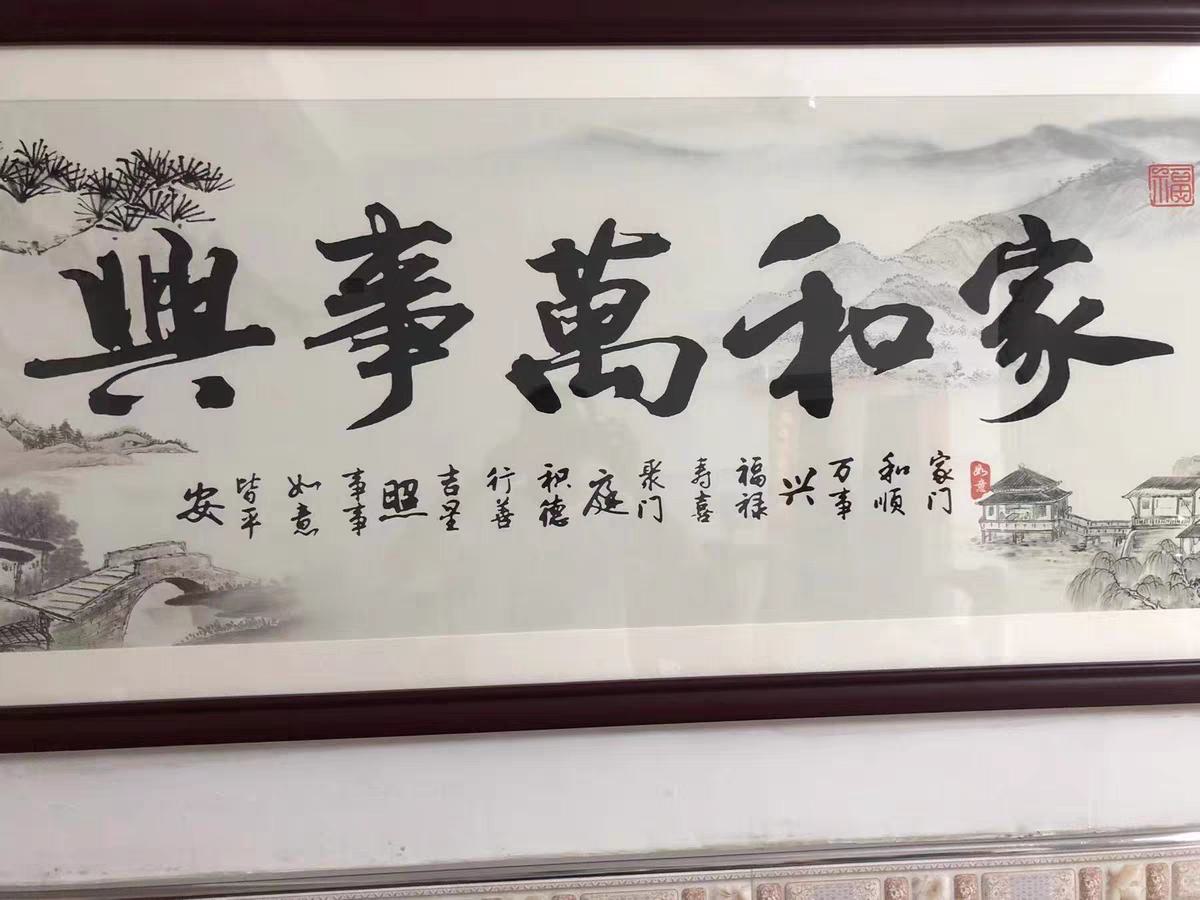 家和萬事興
福
如意
家门
和顺
万事
兴
福禄
寿喜
聚门
庭
积德
行善
吉星
照
事事
如意
皆平
安